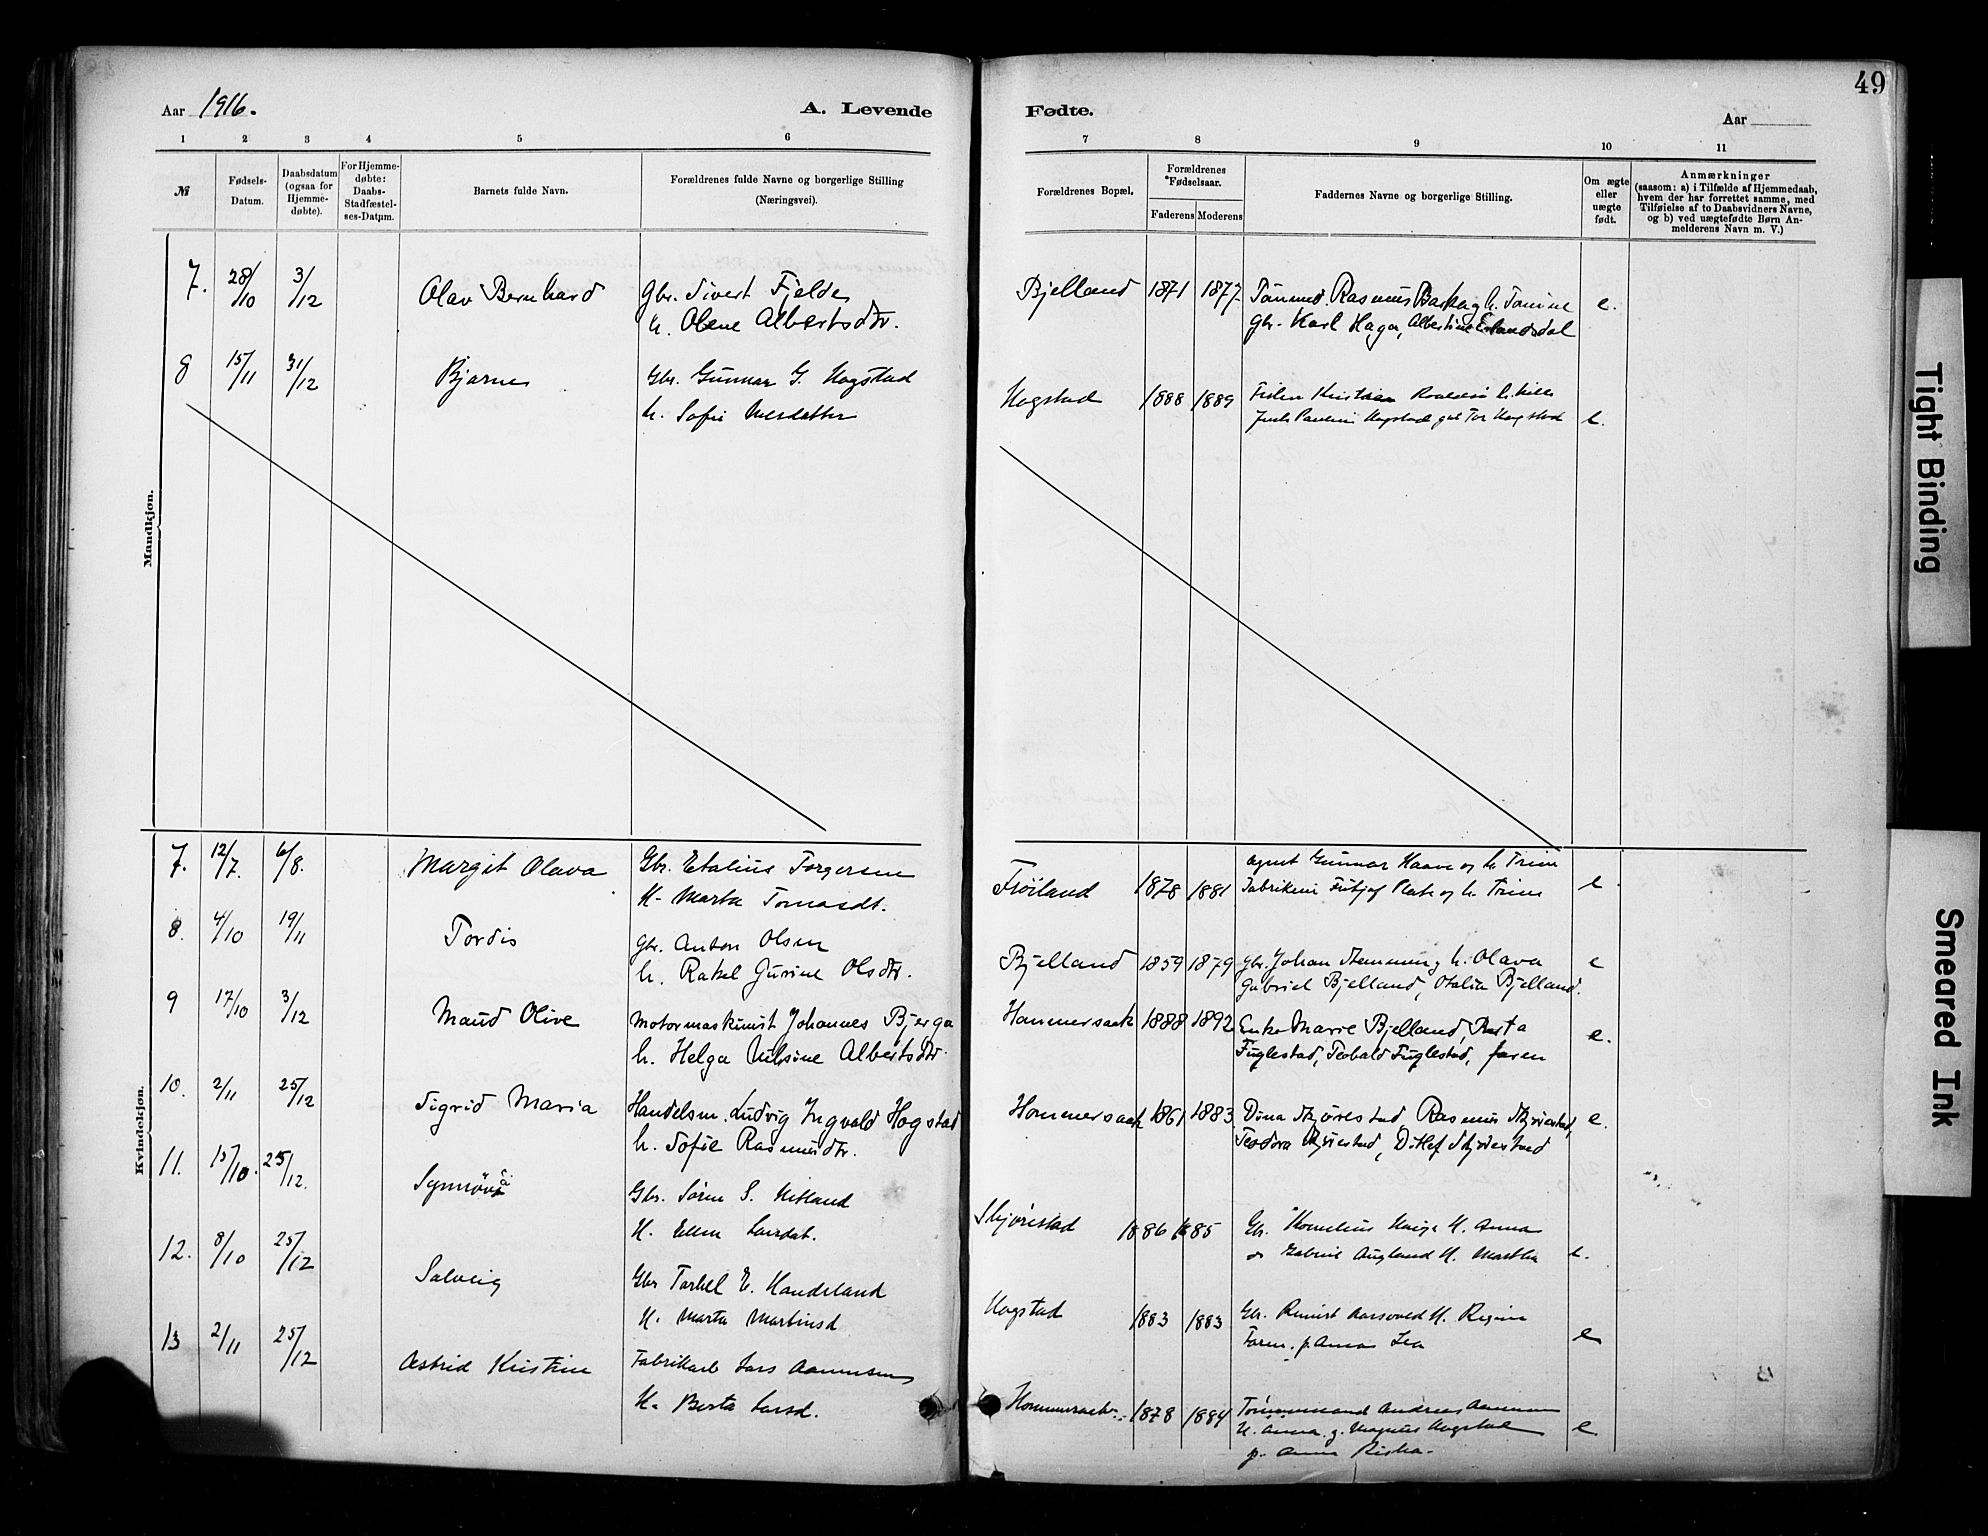 49
Aar 1916.
A. Levende Fødte.
Aar
1 2 3 4 5 6 7 8 9 10 11
№
Fødsels-
Datum.
Daabsdatum
(ogsaa for
Hjemme-
døbte).
For Hjemme-
døbte:
Daabs-
Stadfæstel-
ses-Datum.
Barnets fulde Navn.
Forældrenes fulde Navne og borgerlige Stilling
(Næringsvei).
Forældrenes Bopæl.
Forældrenes
Fødselsaar.
Faderens Moderens
Faddernes Navne og borgerlige Stilling.
Om ægte
eller
uægte
født.
Anmærkninger
(saasom: a) i Tilfælde af Hjemmedaab,
hvem der har forrettet samme, med
Tilføielse af to Daabsvidners Navne,
og b) ved uægtefødte Børn An-
melderens Navn m. V.)
Mandkjøn.
7. 28/10 3/12 Olav Bernhard Gbr. Sivert Fjelde Bjelland 1871 1877 Rasmus h. Tomine e.
h. Olene Albertsdtr. gbr. Karl Haga, Albertine
8 15/11 31/12 Bjarne Gbr. Gunnar G. Hogstad Hogstad 1888 1889 Kristian
h. Sofie Hogstad Tor Hogstad e.
Kvindekjøn.
7. 12/7. 6/8. Margit Olava Gbr. Etalius Torgersen Frøiland 1878 1881 agent Gunnar Haave og h. Trine e
H. Marta Tomasdt. Fritjof og h. Trine
8. 4/10 19/11 Tordis gbr. Anton Olsen Bjelland 1859 1879 gbr. Johan h. Olava e
h. Rakel Gurine Olsdtr. Gabriel Bjelland, Otalia Bjelland.
9 17/10 3/12 Maud Olive Motormaskinist Johannes Bjerga Hommersaak 1888 1892 Enke Marie Bjelland, Berta
h. Helga Nilsine Albertsdtr. Fuglestad, Teobald Fuglestad, faren e.
10. 2/11 25/12 Sigrid Maria Handelsm. Ludvig Ingvald Hogstad Hommersaak 1861 1883 Dina Skjørestad, Rasmus Skjørestad, e.
h. Sofie Rasmusdtr. Teodora Skjørestad, Ditlef Skjørestad
11. 15/10. 25/12. Synnøva Gbr. Søren S. Skjørestad 1886 1885 Gbr. Kornelius Hauge H. Anna
H. Ellen Larsdat. Gabriel Augland H. Martha e.
12. 8/10 25/12 Solveig Gbr Torkel E. Handeland Hogstad 1883 1883 Gbr. Aarsvold H. Regine
H. Marta Martinsd p. Anna Lea e
13 2/11 25/12 Astrid Kristine Fabrikarb Lars Aamodsen Hommersaak 1878 1884 Tømmermand Andreas
H. Berta Larsd. H. Anna g. Magnus Hogstad e
p. Anna Riska.
Tight Binding
Smeared Ink